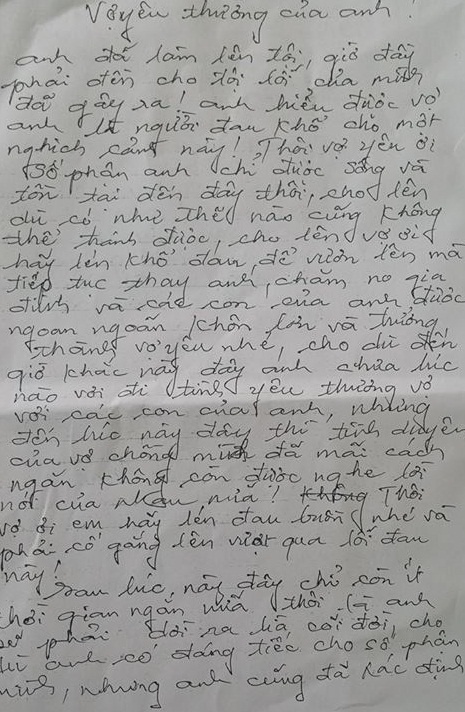 Vợ yêu thương của anh!
anh đã làm lên tội, giờ đây
phải đền cho tội lỗi của mình
đã gây ra! anh hiểu được vợ
anh là người đau khổ cho một
nghịch cảnh này! Thôi vợ yêu ơi
Số phận anh chỉ được sống và
tồn tại đến đây thôi, cho lên
dù có như thế nào cũng không
thể tránh được, cho lên vợ ơi
hãy lén khổ đau, để vươn lên mà
tiếp tục thay anh, chăm no gia
đình và các con của anh được
ngoan ngoãn khôn lớn và trưởng
thành vợ yêu nhé, cho dù đến
giờ khắc này đây anh chưa lúc
nào vơi đi tình yêu thương vợ
với các con của anh, nhưng
đến lúc này đây thì tình duyên
của vợ chồng mình đã mãi cách
ngăn không còn được nghe lời
nói của nhau nữa! Thôi
vợ ơi em hãy lén đau buồn nhé và
phải cố gắng lên vượt qua lỗi đau
này!
Sau lúc này đây chỉ còn ít
thời gian ngắn nữa thôi là anh
sẽ phải dời ra xa cõi đời, cho
dù anh có đáng tiếc cho số phận
mình, nhưng anh cũng đã xác định